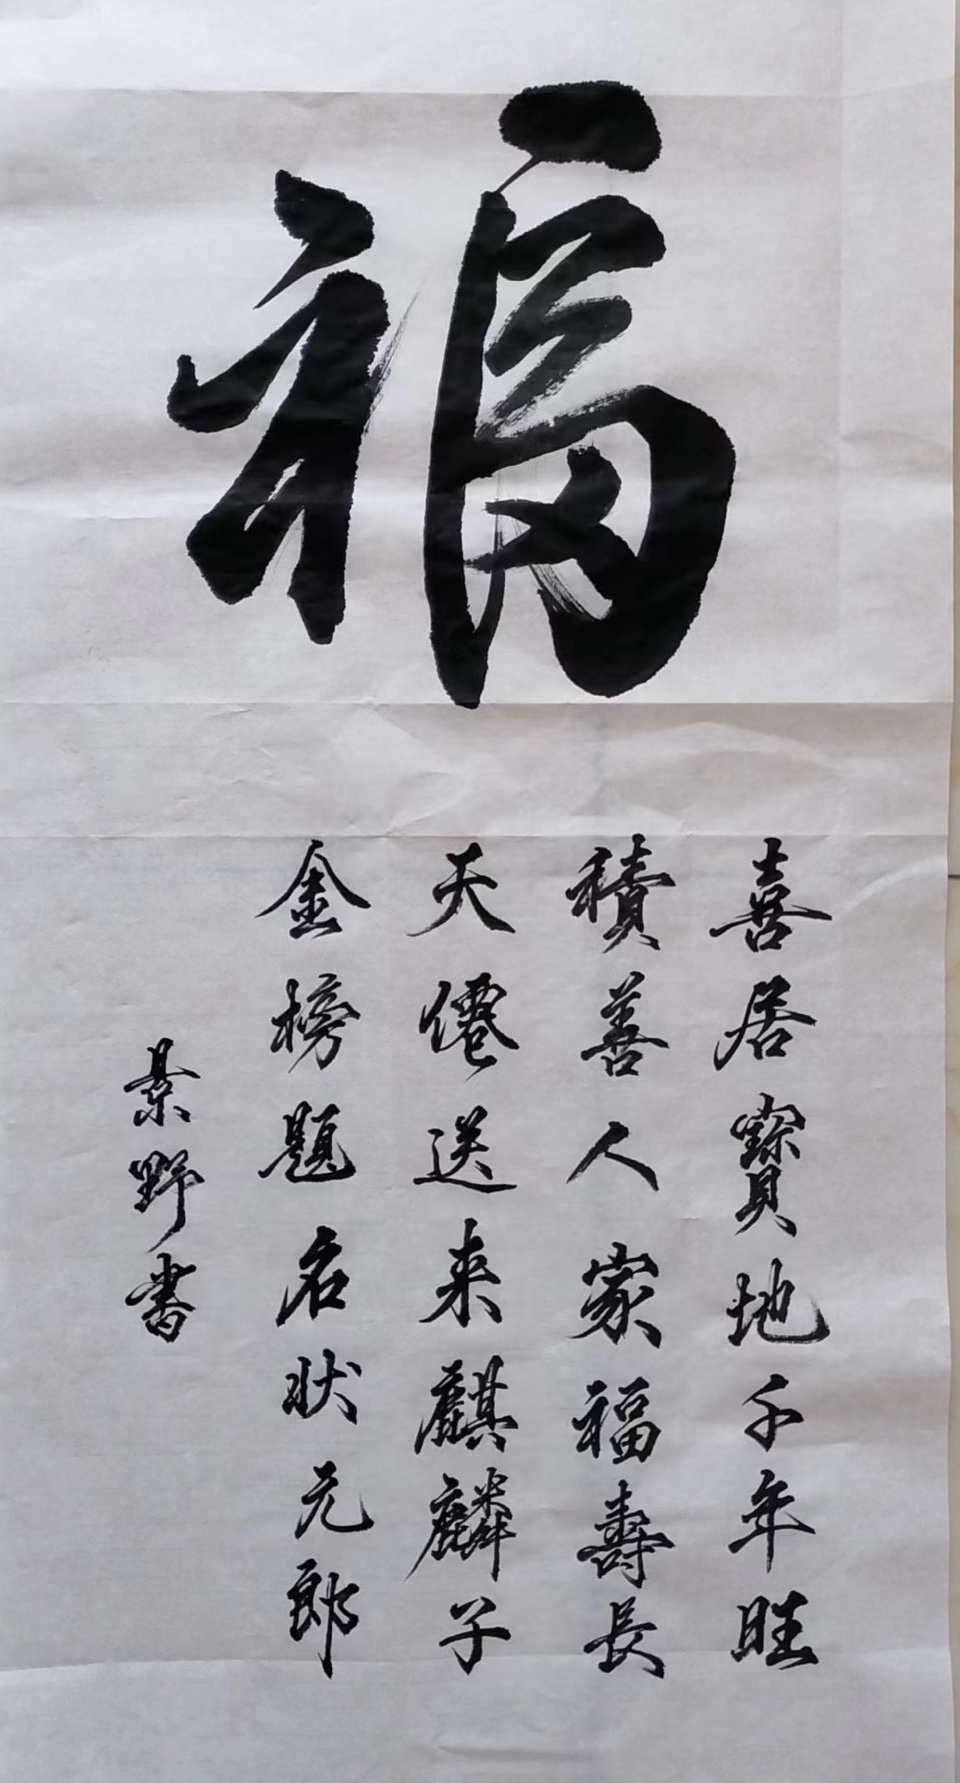 福
喜居寶地千年旺
積善人家福壽長
天僊送来麒麟子
金榜題名状元郎
景野书